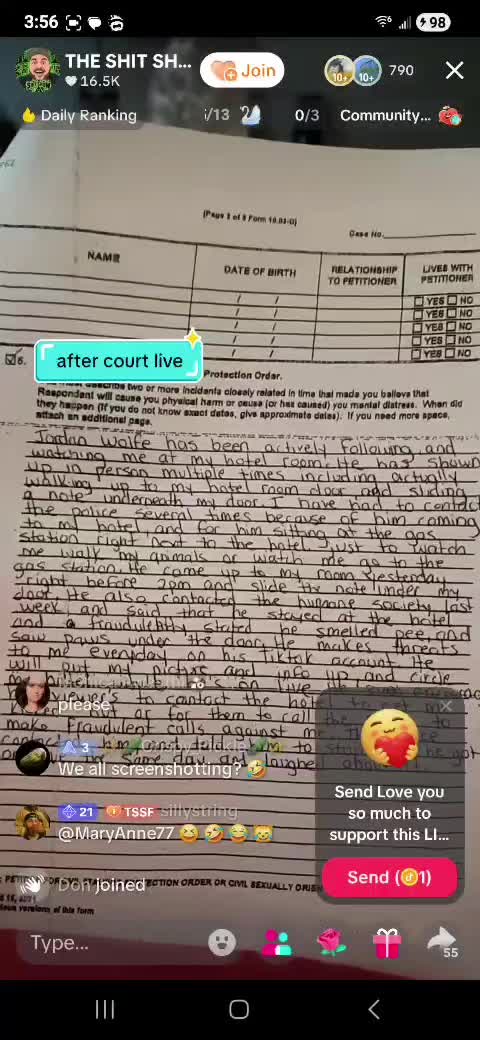 3:56
98
THE SHIT SH...
16.5K
Join
10+
10+
790
Daily Ranking
/13
0/3
Community...
(Page 3 of 5 Form 10.03-G)
Case No.
NAME
DATE OF BIRTH
RELATIONSHIP TO PETITIONER
LIVES WITH PETITIONER
/ /
YES NO
/ /
YES NO
/ /
YES NO
/ /
YES NO
/ /
YES NO
after court live
Protection Order.
describe two or more incidents closely related in time that made you believe that
Respondent will cause you physical harm or cause (or has caused) you mental distress. When did
they happen (if you do not know exact dates, give approximate dates). If you need more space,
attach an additional page.
has been actively following and
watching me at my hotel room. He has shown
up in person multiple times including actually
walking up to my hotel room door, and sliding
a note underneath my door. I have had to contact
the police several times because of him coming
to my hotel, and for him sitting at the gas
station right next to the hotel just to watch
me walk my animals or watch me go to the
gas station. He came up to my room yesterday
right before 2pm and slide the note under my
door. He also contacted the humane society last
week and said that he stayed at the hotel
and a fraudulently stated he smelled pee, and
saw paws under the door. He makes threats
to me everyday on his tiktok account. He
will put my picture and info up, and circle
on live
viewer's to contact the hotel
for them to call the
make fraudulent calls against me.
to
the same day and laughed
please
3
We all screenshotting? 🤣
21
TSSF
sillystring
@MaryAnne77 😆🤣😂😹
Don joined
Send Love you
so much to
support this LI...
Send ( 1)
PROTECTION ORDER OR CIVIL SEXUALLY
of this form
Type...
55